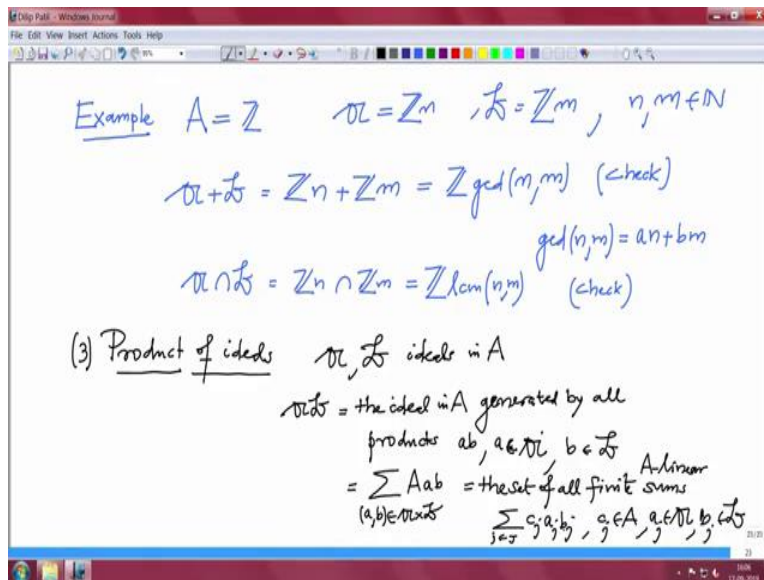 Dilip Patil - Windows Journal
File Edit View Insert Actions Tools Help
Example A = ℤ 𝔞 = ℤn , 𝔟 = ℤm , n, m ∈ ℕ
𝔞+𝔟 = ℤn + ℤm = ℤ gcd(n,m) (check)
gcd(n,m) = an+bm
𝔞∩𝔟 = ℤn ∩ ℤm = ℤ lcm(n,m) (check)
(3) Product of ideals 𝔞, 𝔟 ideals in A
𝔞𝔟 = the ideal in A generated by all
products ab, a∈𝔞, b∈𝔟
= ∑ Aab = the set of all finite A-linear sums
(a,b)∈𝔞×𝔟 ∑ c_j a_j b_j, c_j∈A, a_j∈𝔞, b_j∈𝔟
j∈J
23